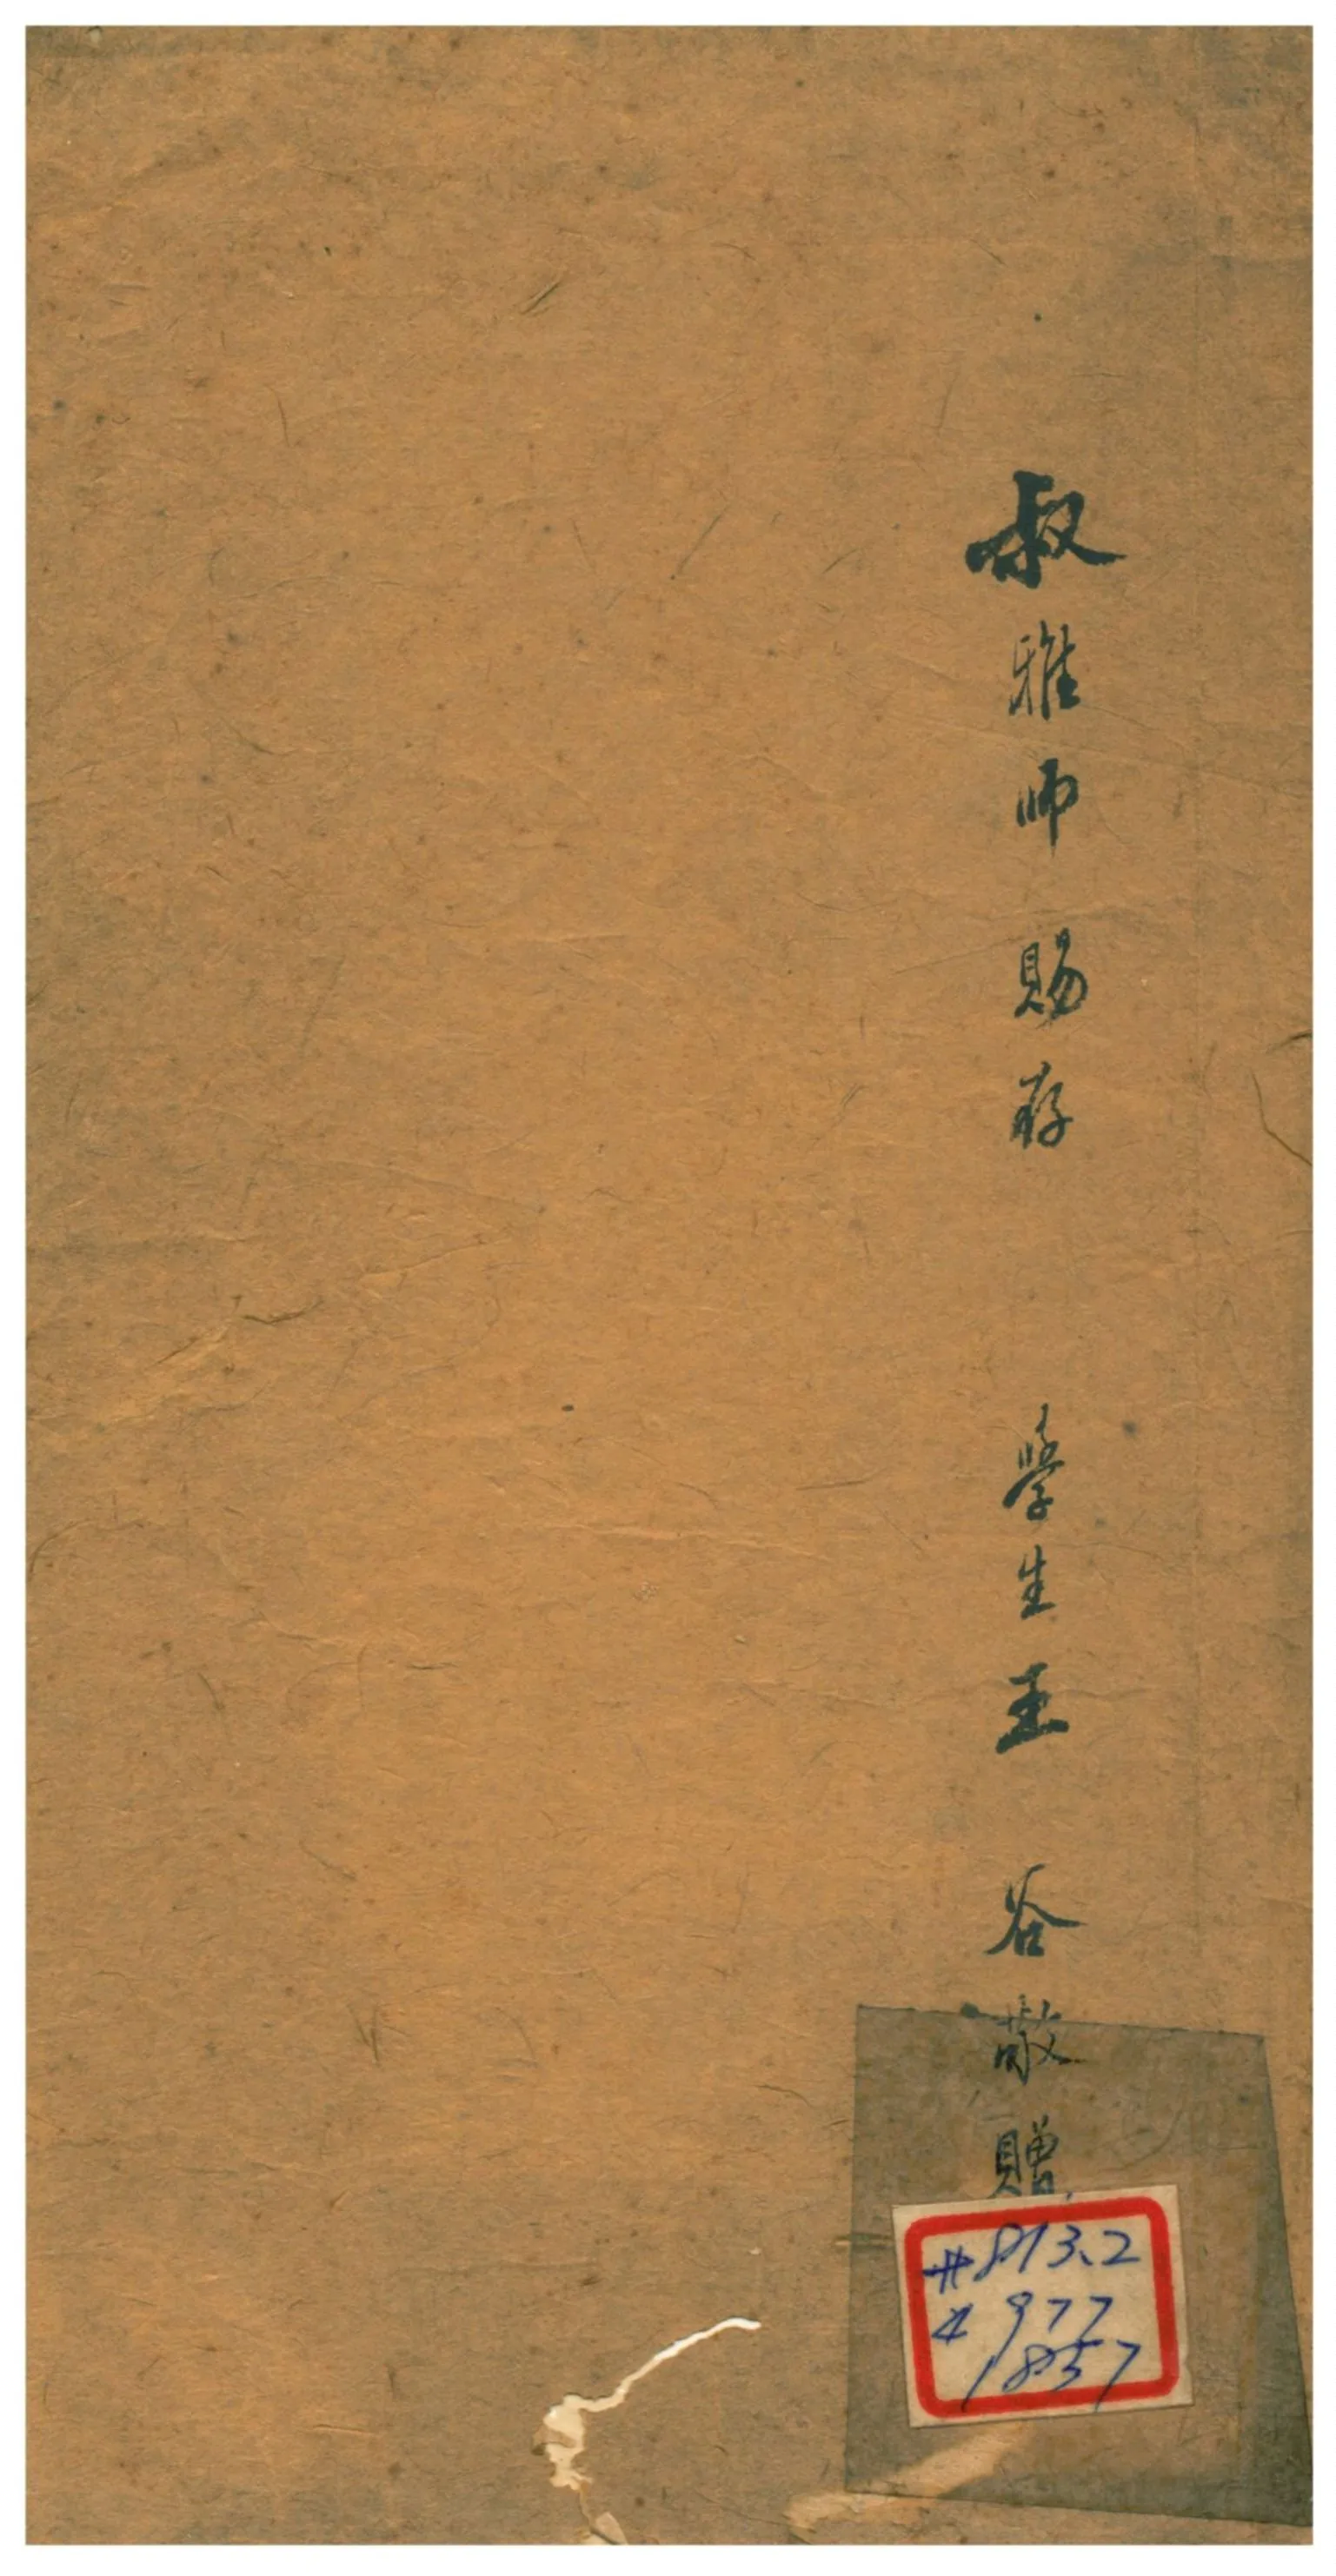 叔雅師賜存 學生王谷敬贈
#813.2
4977
1857